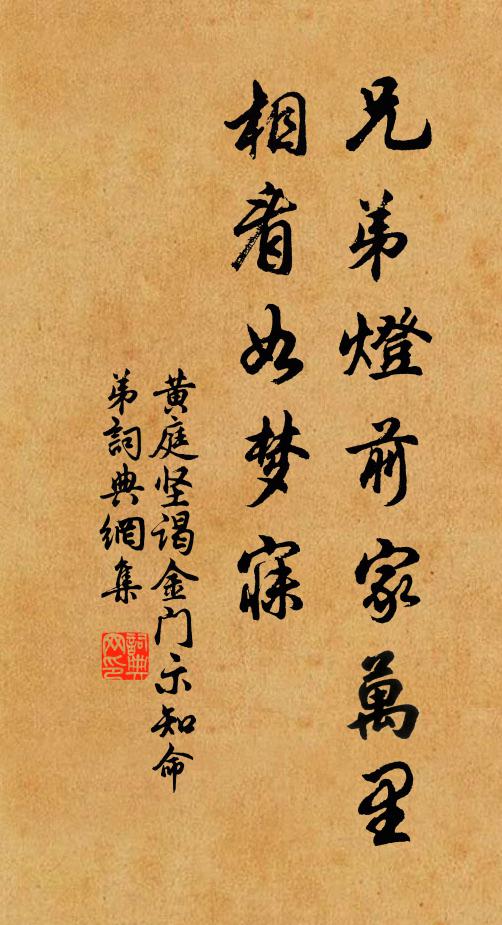 兄弟燈前家萬里
相看如梦寐
黄庭坚谒金门示知命
弟詞典網集
詞典网印